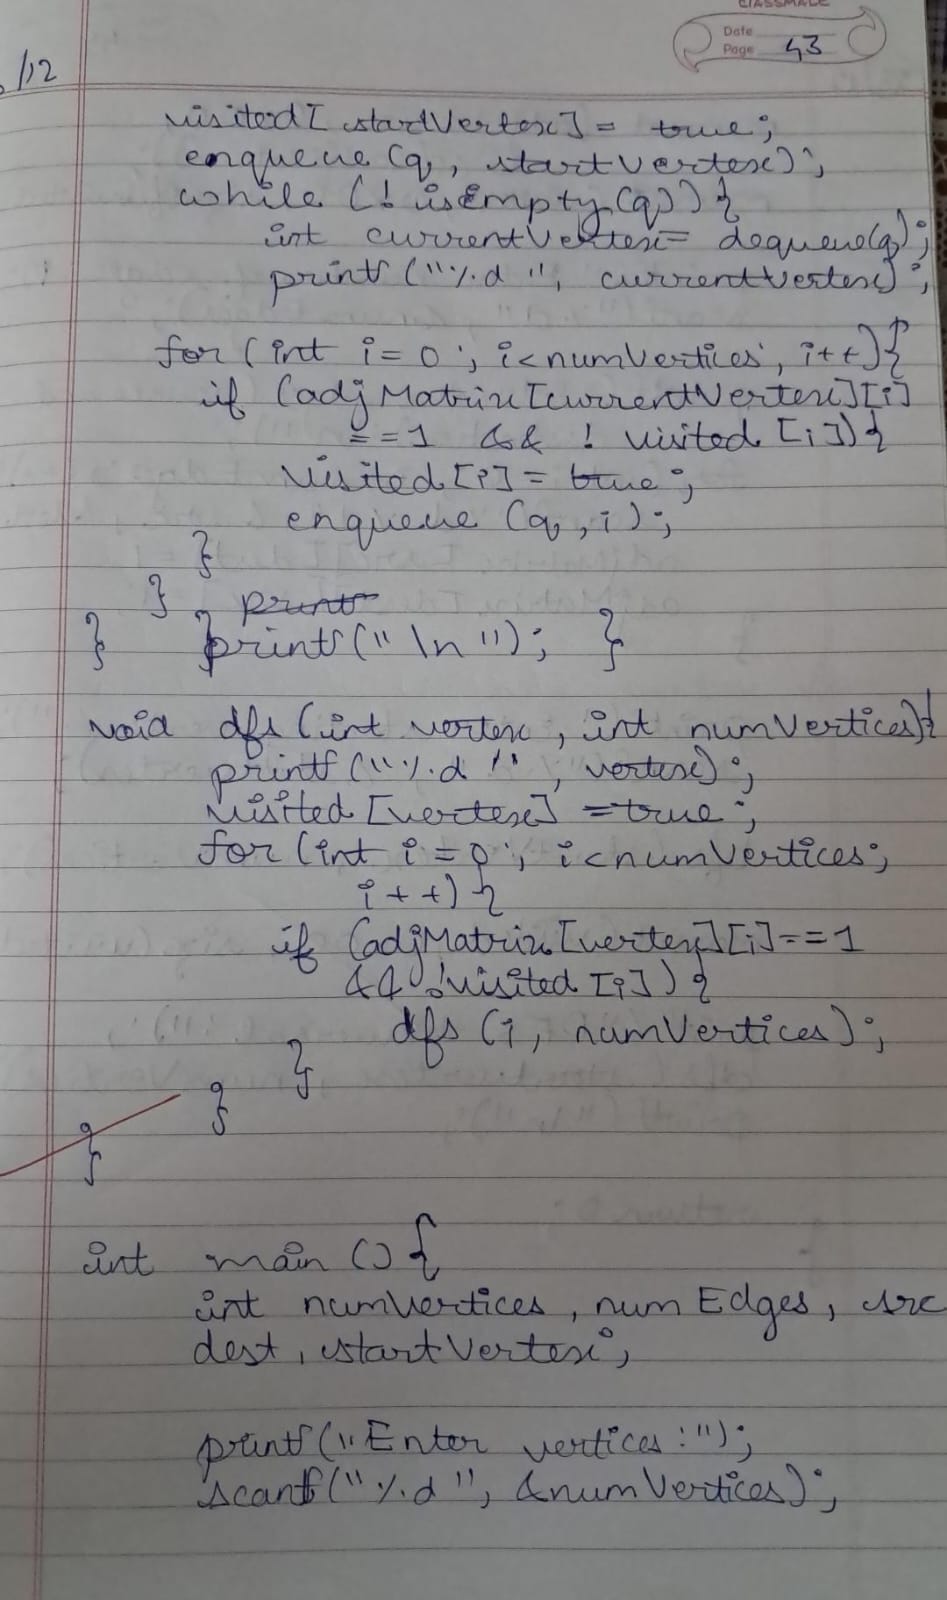 CLASSMATE
Date
Page 43
/12
visited[startVertex] = true;
enqueue(q, startVertex);
while (!isEmpty(q)) {
int currentVertex = dequeue(q);
printf("%d ", currentVertex);
for (int i = 0; i < numVertices; i++) {
if (adjMatrix[currentVertex][i]
== 1 && !visited[i]) {
visited[i] = true;
enqueue(q, i);
}
} print
} } printf("\n"); }
void dfs(int vertex, int numVertices) {
printf("%d ", vertex);
visited[vertex] = true;
for (int i = 0; i < numVertices;
i++) {
if (adjMatrix[vertex][i] == 1
&& !visited[i]) {
dfs(i, numVertices);
}
}
}
int main() {
int numVertices, numEdges, src
dest, startVertex;
printf("Enter vertices:");
scanf("%d", &numVertices);